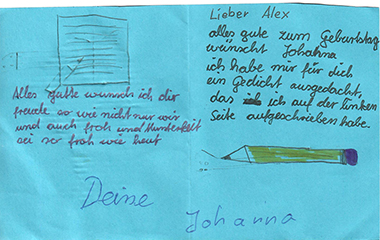 Alles gutte wunsch ich dir
freude so wie nicht nur wir
und auch froh und Munterkeit
sei so froh wie heut
Lieber Alex
alles gute zum Geburtstag
wünscht Johanna
ich habe mir für dich
ein Gedicht ausgedacht,
das ich auf der linken
Seite aufgeschrieben habe.
Deine
Johanna